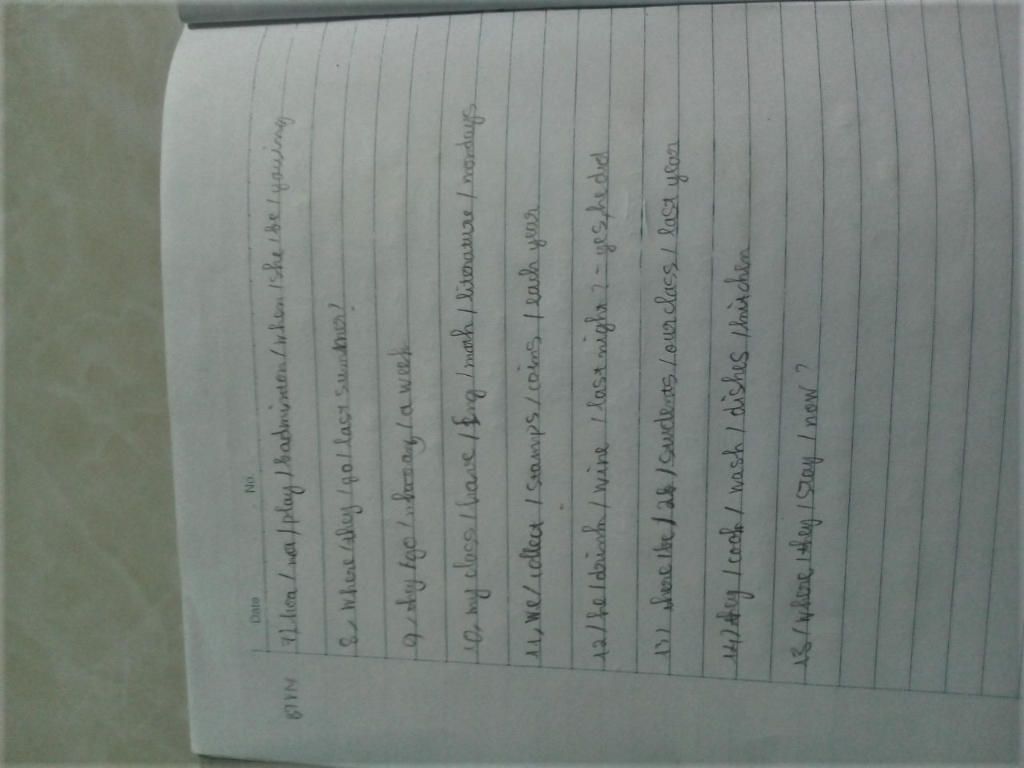 Date No.
BTVN
7, hoa / not / play / badminton / when / she / be / young
8, Where / they / go / last summer?
9, they / go / / a week
10, my class / have / Eng / math / literature / mondays
11, we / collect / stamps / coins / each year
12 / he / drink / wine / last night? - yes, he did
13) there / be / 26 / students / our class / last year
14) they / cook / wash / dishes / kitchen
15 / where / they / stay / now?